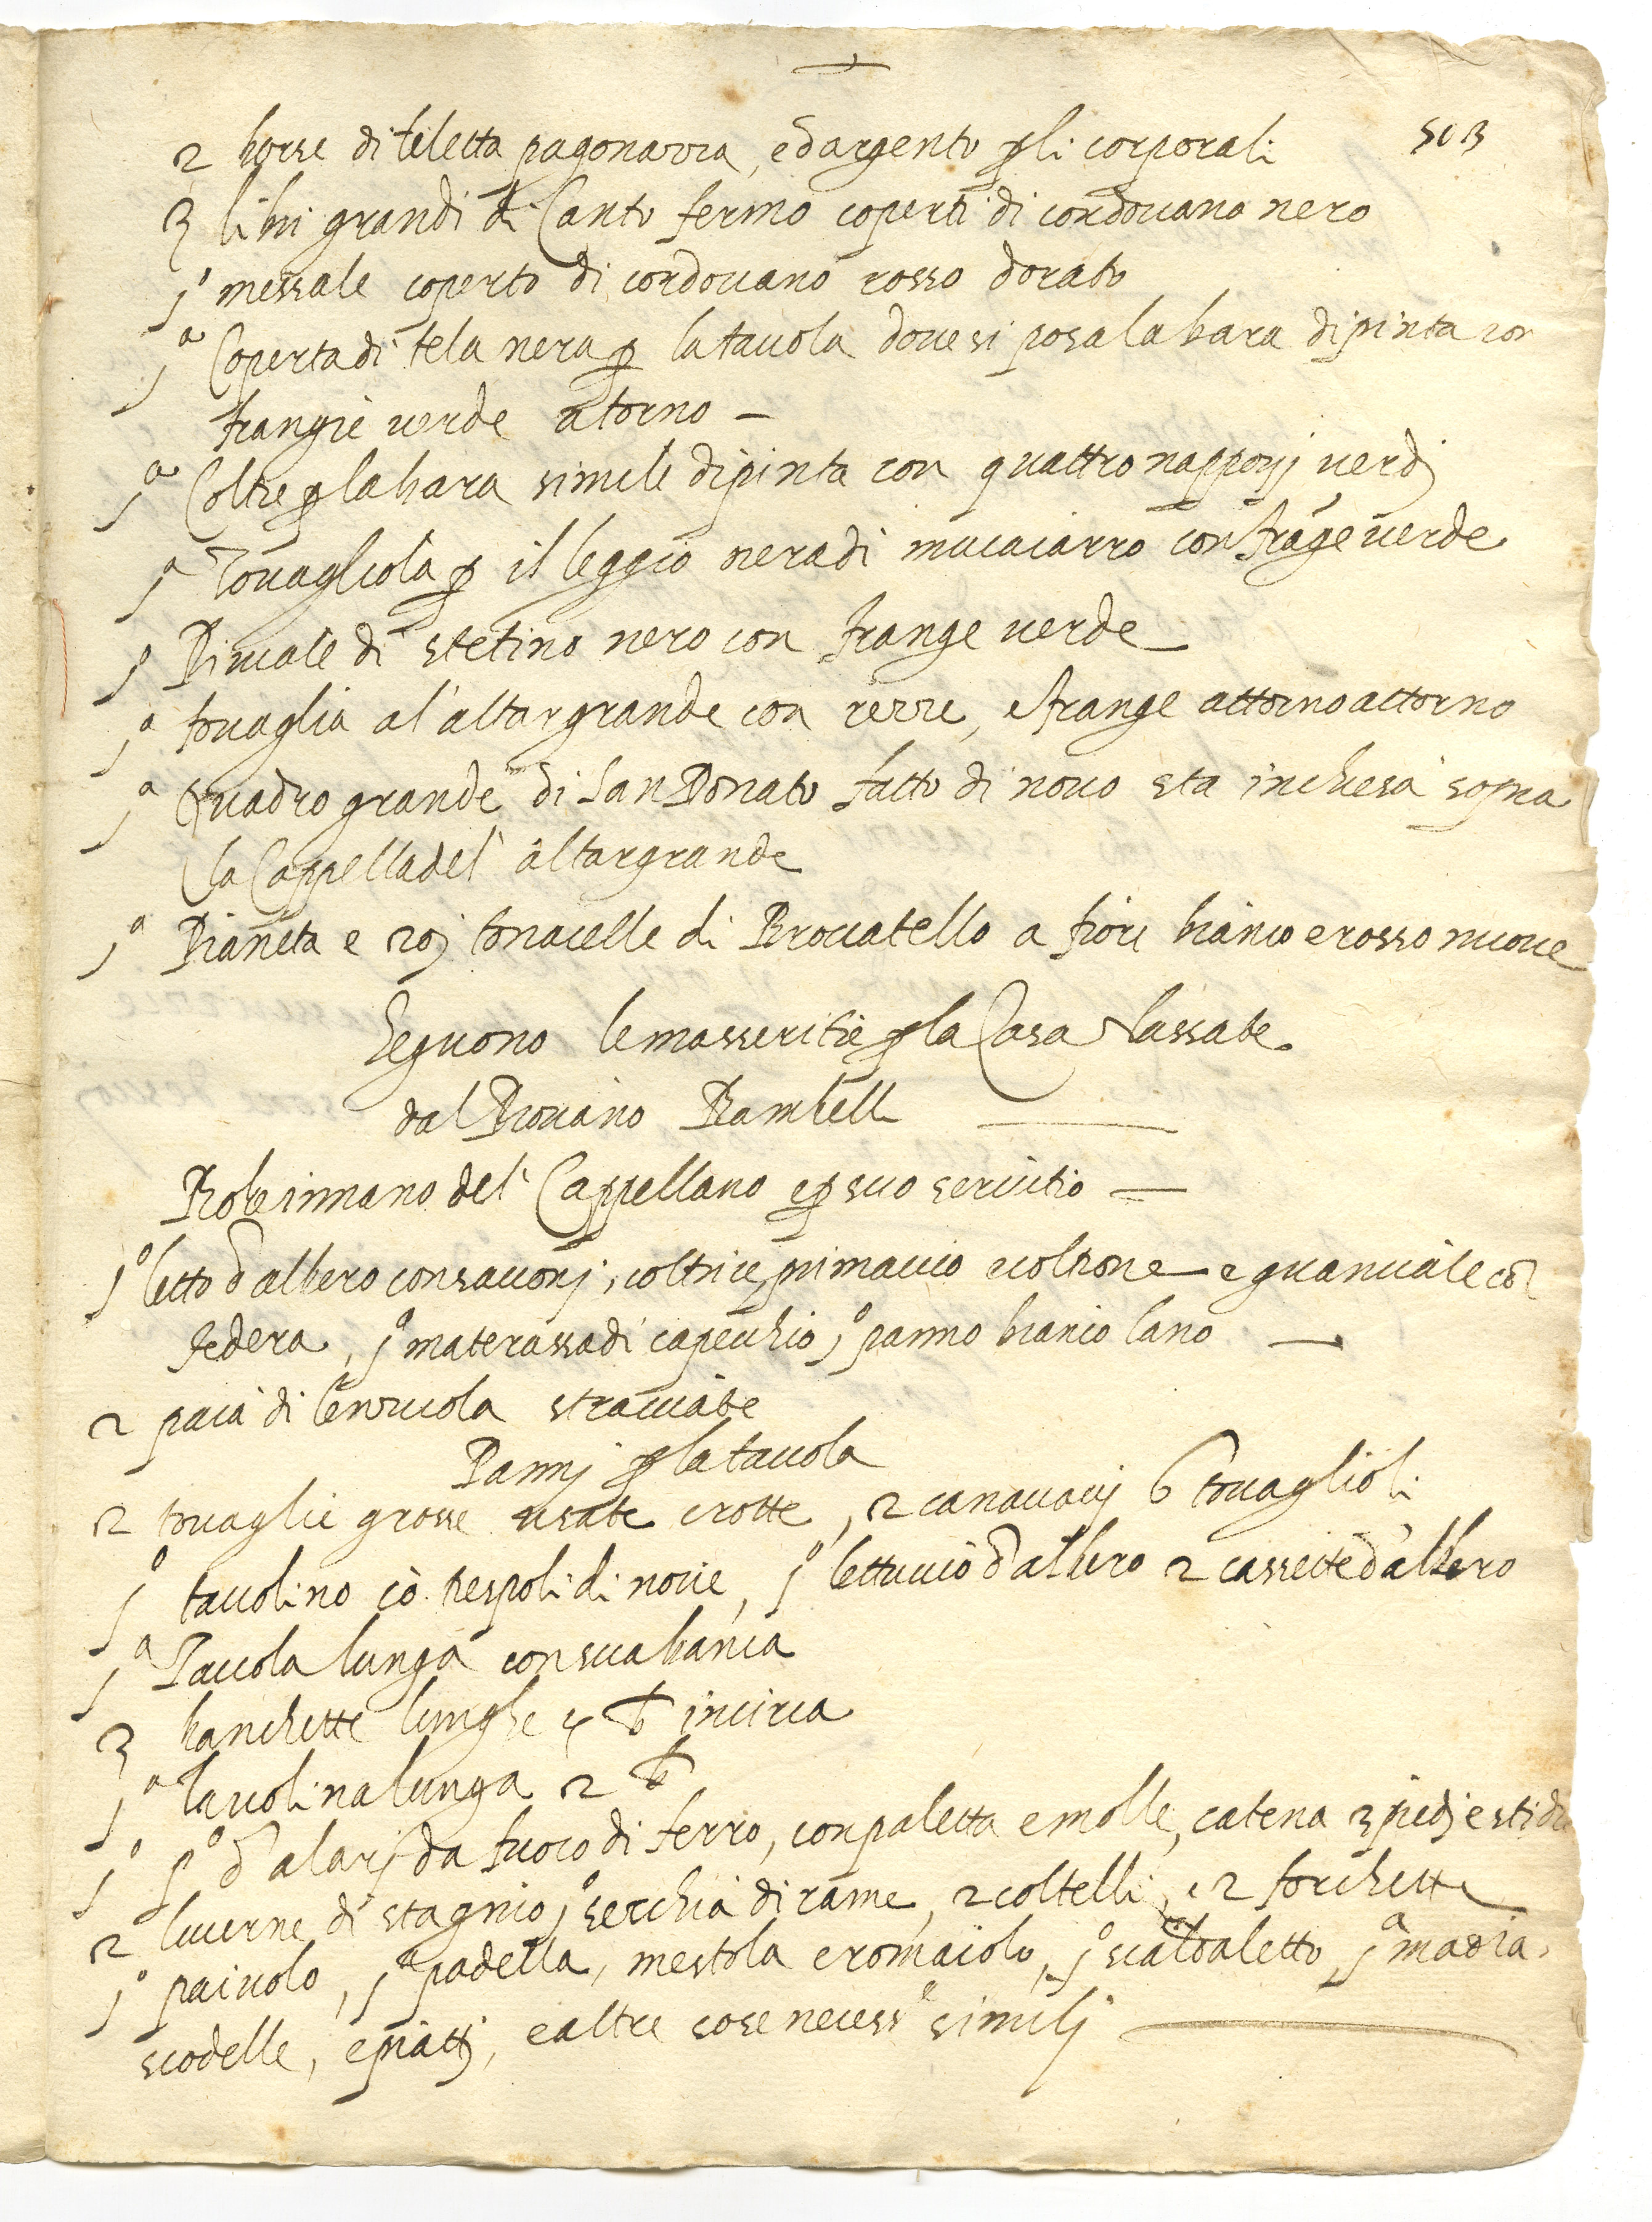 513
2 borse di teletta pagonazza, ed argento p li corporali
3 libri grandi di Canto fermo coperti di cordouano nero
1º messale coperto di cordouano rosso dorato
1ª Coperta di tela nera p la tauola doue si posa la bara dipinta con
frangie uerde atorno —
1ª Coltre p la bara simile dipinta con quattro napponj uerdj
1ª Touagliola p il leggio nera di mucaiarro con frāge uerde
1 Piuiale di stetino nero con frange uerde
1ª touaglia al'altar grande con rezze, e frange attorno attorno
1ª Quadro grande di San Donato fatto di nouo sta in chiesa sopra
la Cappella del' altar grande
1ª Pianeta e 2oj tonacelle di Broccatello a fiori bianco e rosso nuoue
Seguono le masseritie p la Casa lassate
dal Piouano Rambelli
Robe in mano del' Cappellano e p suo seruitio —
1º letto d'albero con sacconj, coltrice, pimaccio e coltrone e guanciale cō
federa, 1º materassa di capecchio 1º panno bianco lano —
2 paia di lenzuola stracciate
Pannj p la tauola
2 touaglie grosse usate e rotte, 2 canauacij 6 touaglioli
1º tauolino cō trespoli di noce, 1º lettuccio d'albero 2 cassette d'albero
1ª Tauola lunga con sua banca
3 banchette lunghe 4 b incirca
1ª tauolina lunga 2 b
1º pº d'alarj da fuoco di ferro, con paletta e molle, catena 3 piedj e stidi
2 lucerne di stagnio 1º secchia di rame, 2 coltelli, e 2 forchette
1º paiuolo, 1ª padella, mestola e romaiolo, 1º scaldaletto, 1ª madia,
scodelle, e piattj, e altre cose necessᵉ similj